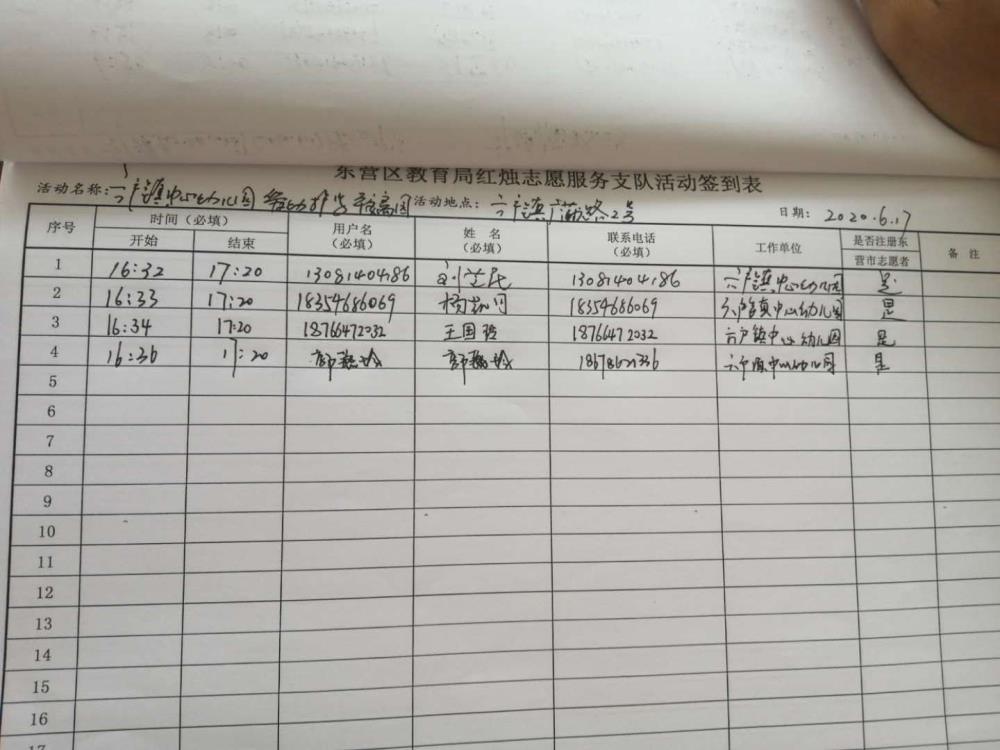 东营区教育局红烛志愿服务支队活动签到表
活动名称：六户镇中心幼儿园 活动地点：六户镇 路2号 日期：2020.6.17
序号 时间（必填） 用户名（必填） 姓名（必填） 联系电话（必填） 工作单位 是否注册东营市志愿者 备注
开始 结束
1 16:32 17:20 13081404186 13081404186 六户镇中心幼儿园 是
2 16:33 17:20 18354686069 18354686069 六户镇中心幼儿园 是
3 16:34 17:20 18766472032 王国 18766472032 六户镇中心幼儿园 是
4 16:36 17:20 六户镇中心幼儿园 是
5
6
7
8
9
10
11
12
13
14
15
16
17